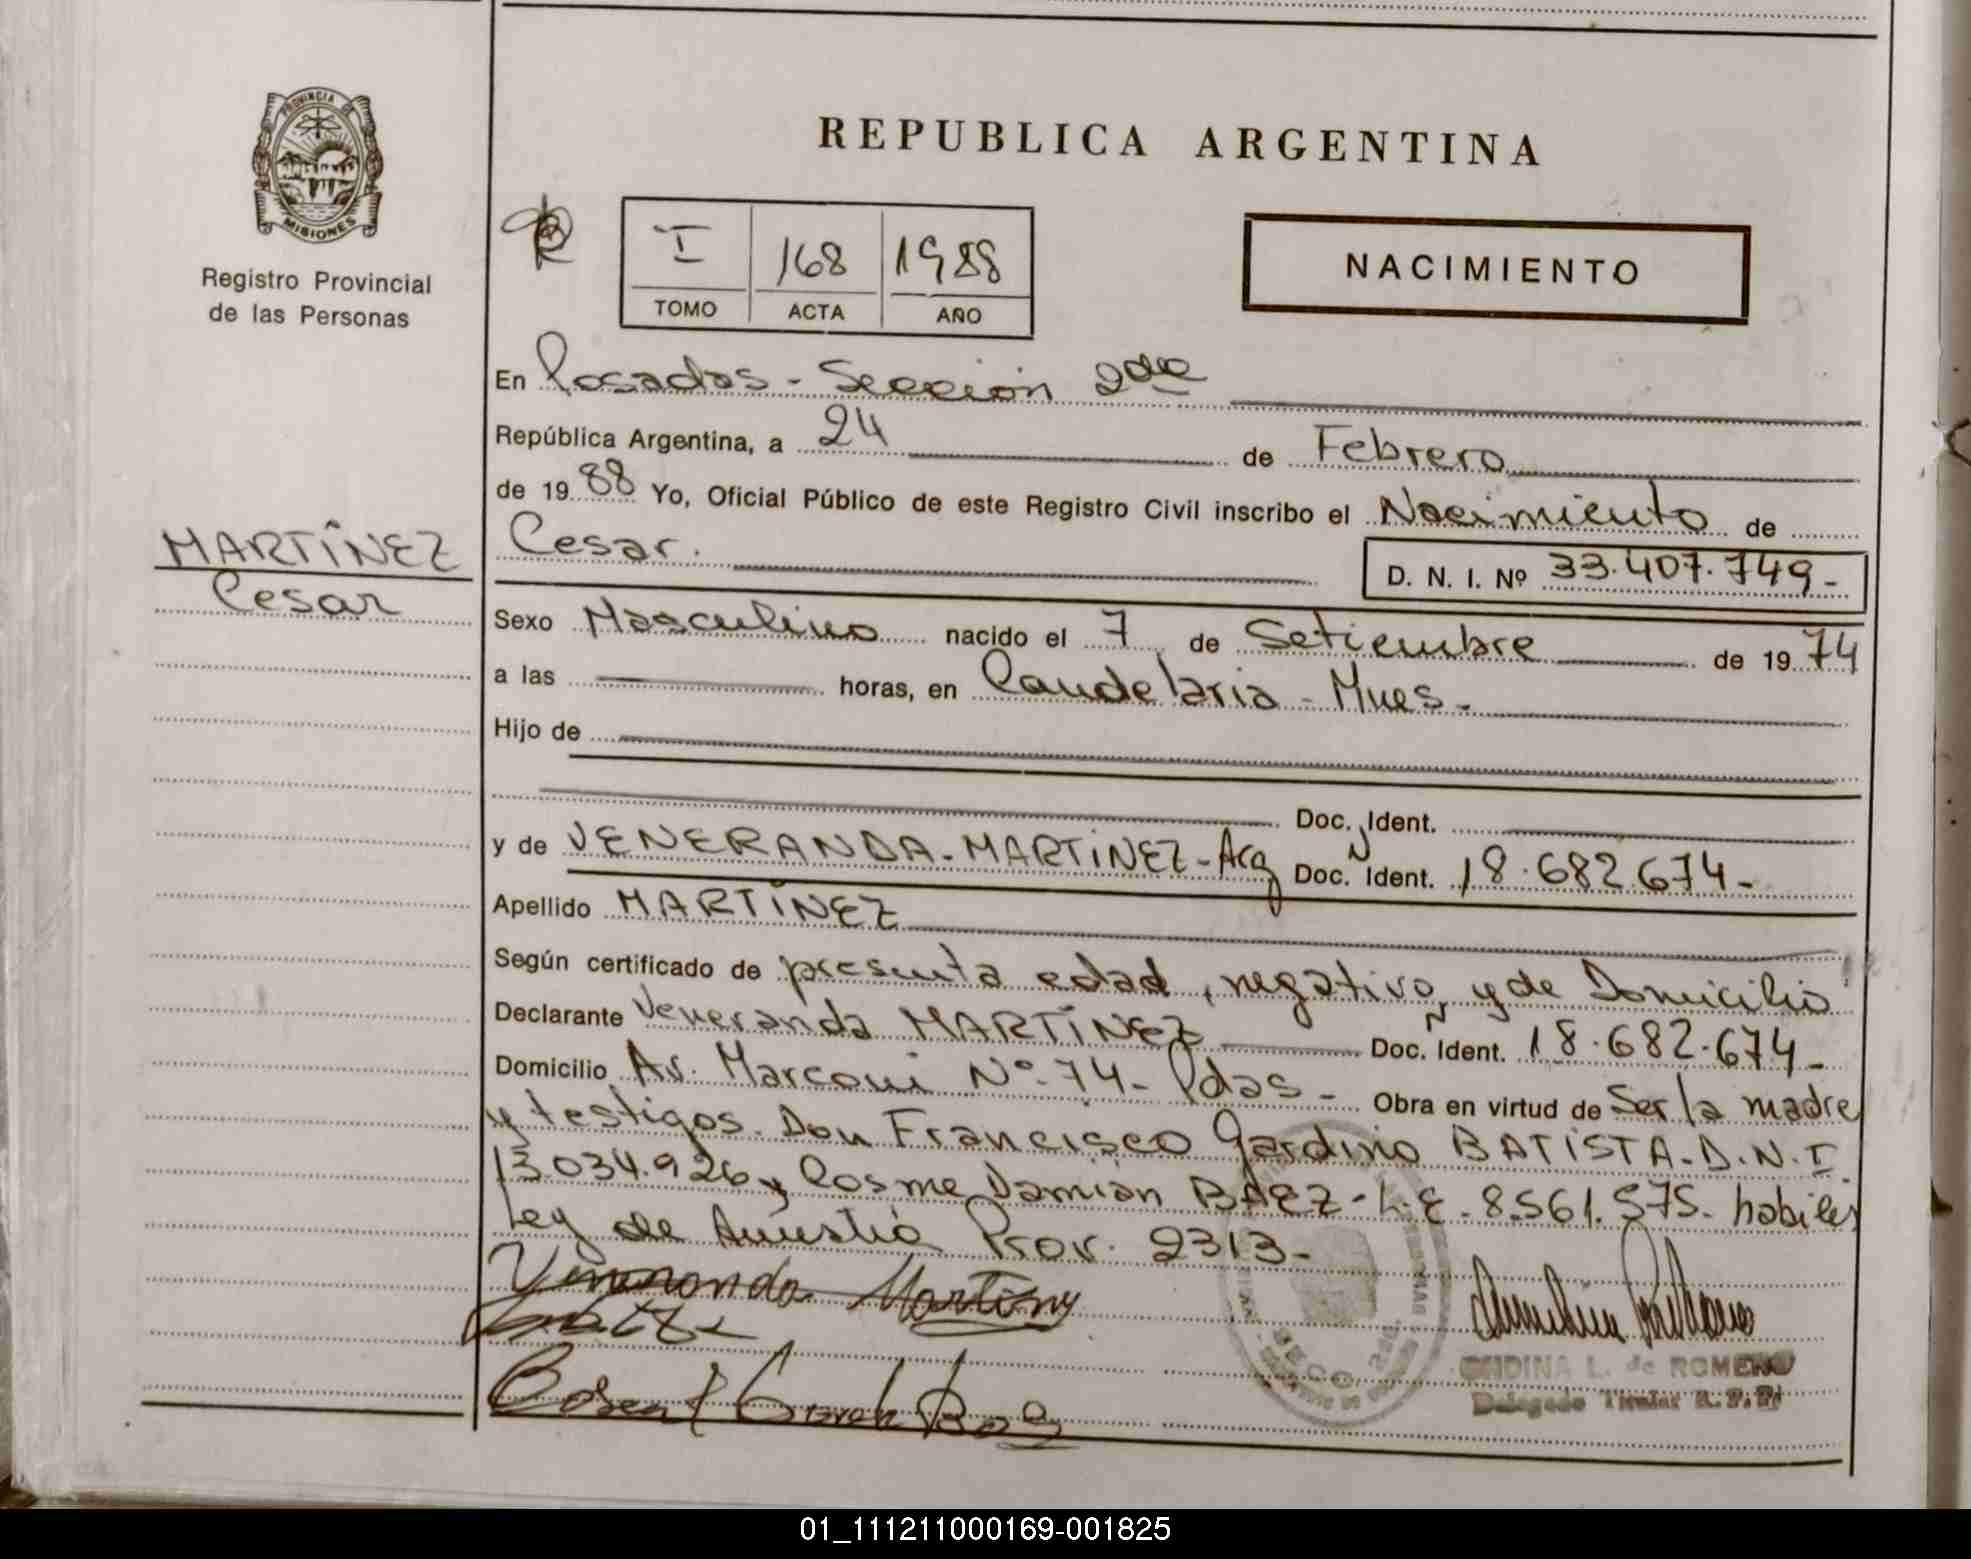 REPUBLICA ARGENTINA
PROVINCIA DE
MISIONES
Registro Provincial
de las Personas
I 168 1988
TOMO ACTA AÑO
NACIMIENTO
En Posadas - Sección 2da
República Argentina, a 24 de Febrero
de 1988 Yo, Oficial Público de este Registro Civil inscribo el Nacimiento de
MARTÍNEZ
Cesar
Cesar.
D. N. I. Nº 33.407.749-
Sexo Masculino nacido el 7 de Setiembre de 1974
a las horas, en Candelaria - Mnes-
Hijo de
Doc. Ident.
y de VENERANDA-MARTÍNEZ-Arg Doc. N Ident. 18.682.674-
Apellido MARTÍNEZ
Según certificado de presunta edad, negativo, y de Domicilio
Declarante Veneranda MARTÍNEZ Doc. N Ident. 18.682.674-
Domicilio Av. Marconi Nº 74- Pdas- Obra en virtud de Ser la madre
y testigos. Don Francisco Gardino BATISTA. D.N.I
13.034.926 y Cosme Damián BAEZ - L.E. 8.561.575. habiles
Ley de Amnistía Prov. 2313-
Veneranda Martinez
L. de ROMERO
Delegado Titular R.P.P.
01_111211000169-001825